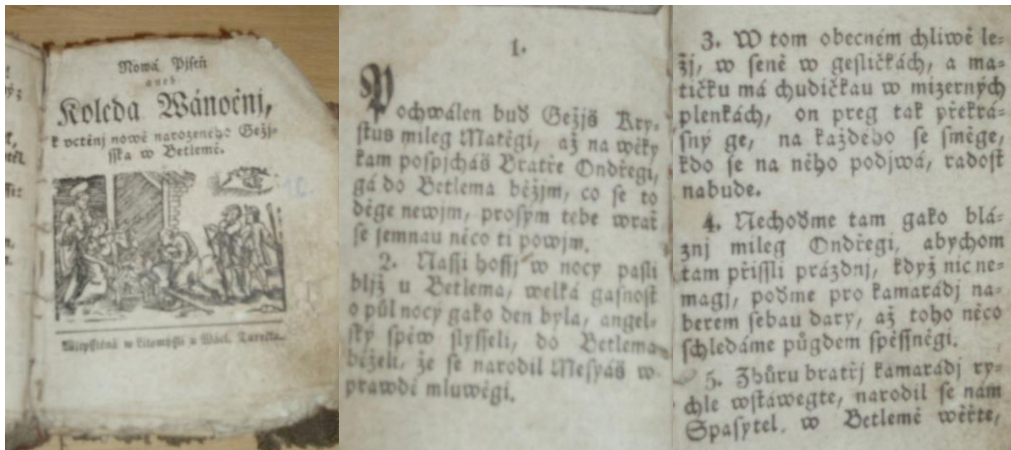 Nowá Pjseň
aneb
Koleda Wánočnj,
k vctěnj nowě narozeného Gežj-
ška w Betlemě.
Wytisstěná w Litomyssli u Wácl. Turečka.
1.
Pochwálen buď Gežjš Kry-
stus mileg Matěgi, až na wěky
kam pospjcháš Bratře Ondřegi,
gá do Betlema běžjm, co se to
děge newjm, prosym tebe wrať
se semnau něco ti powjm.
2. Nassi hossj w nocy pasli
bljž u Betlema, welká gasnost
o půl nocy gako den byla, angel-
ský spěw slysseli, do Betlema
běželi, že se narodil Mesyáš w
prawdě mluwěgi.
3. W tom obecném chliwě le-
žj, w seně w gesličkách, a ma-
tičku má chudičkau w mizerných
plenkách, on preg tak překrá-
sný ge, na každého se směge,
kdo se na něho podjwá, radost
nabude.
4. Nechoďme tam gako blá-
znj mileg Ondřegi, abychom
tam přissli prázdnj, když nic ne-
magj, poďme pro kamarádj na-
berem sebau dary, až toho něco
schledáme půgdem spěssněgi.
5. Zhůru bratřj kamarádj ry-
chle wstáwegte, narodil se nám
Spasytel, w Betlemě wěřte,